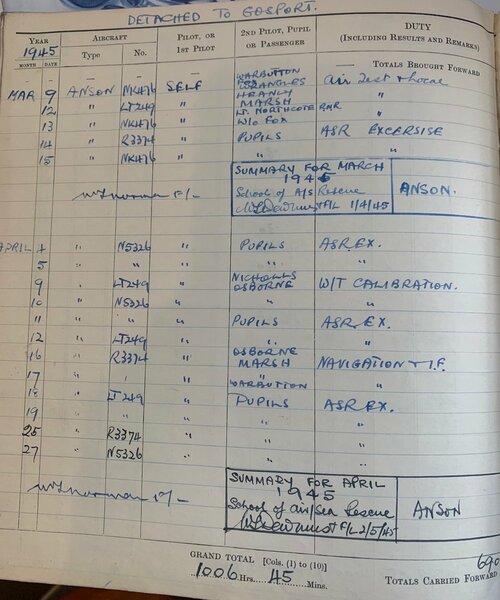 DETACHED TO GOSPORT.
YEAR AIRCRAFT PILOT, OR 2ND PILOT, PUPIL DUTY
1945 1ST PILOT OR PASSENGER (INCLUDING RESULTS AND REMARKS)
MONTH DATE Type No.
— — — — TOTALS BROUGHT FORWARD
WARBUTTON
MAR 9 ANSON NK476 SELF Air Test & Local
HEANLY
12 " LT249 " MARSH "
LT. NORTHCOTE RNR
13 " NK476 " W/O FOX "
14 " R3374 " PUPILS ASR EXCERSISE
15 " NK476 " " "
SUMMARY FOR MARCH
1945 ANSON.
School of A/S Rescue
F/L 1/4/45
APRIL 4 " N5326 " PUPILS ASR EX.
5 " " " " "
9 " LT249 " NICHOLLS
OSBORNE W/T CALIBRATION.
10 " N5326 " " "
11 " " " PUPILS ASR EX.
12 " LT249 " " "
16 " R3374 " OSBORNE
MARSH NAVIGATION & I.F.
17 " " " WARBUTTON "
18 " LT249 " PUPILS ASR EX.
19 " " " " "
25 R3374 " " "
27 N5326 " " "
SUMMARY FOR APRIL
1945 ANSON
School of air/sea Rescue
F/L 2/5/45
GRAND TOTAL [Cols. (1) to (10)]
1006 Hrs. 45 Mins.
TOTALS CARRIED FORWARD 690